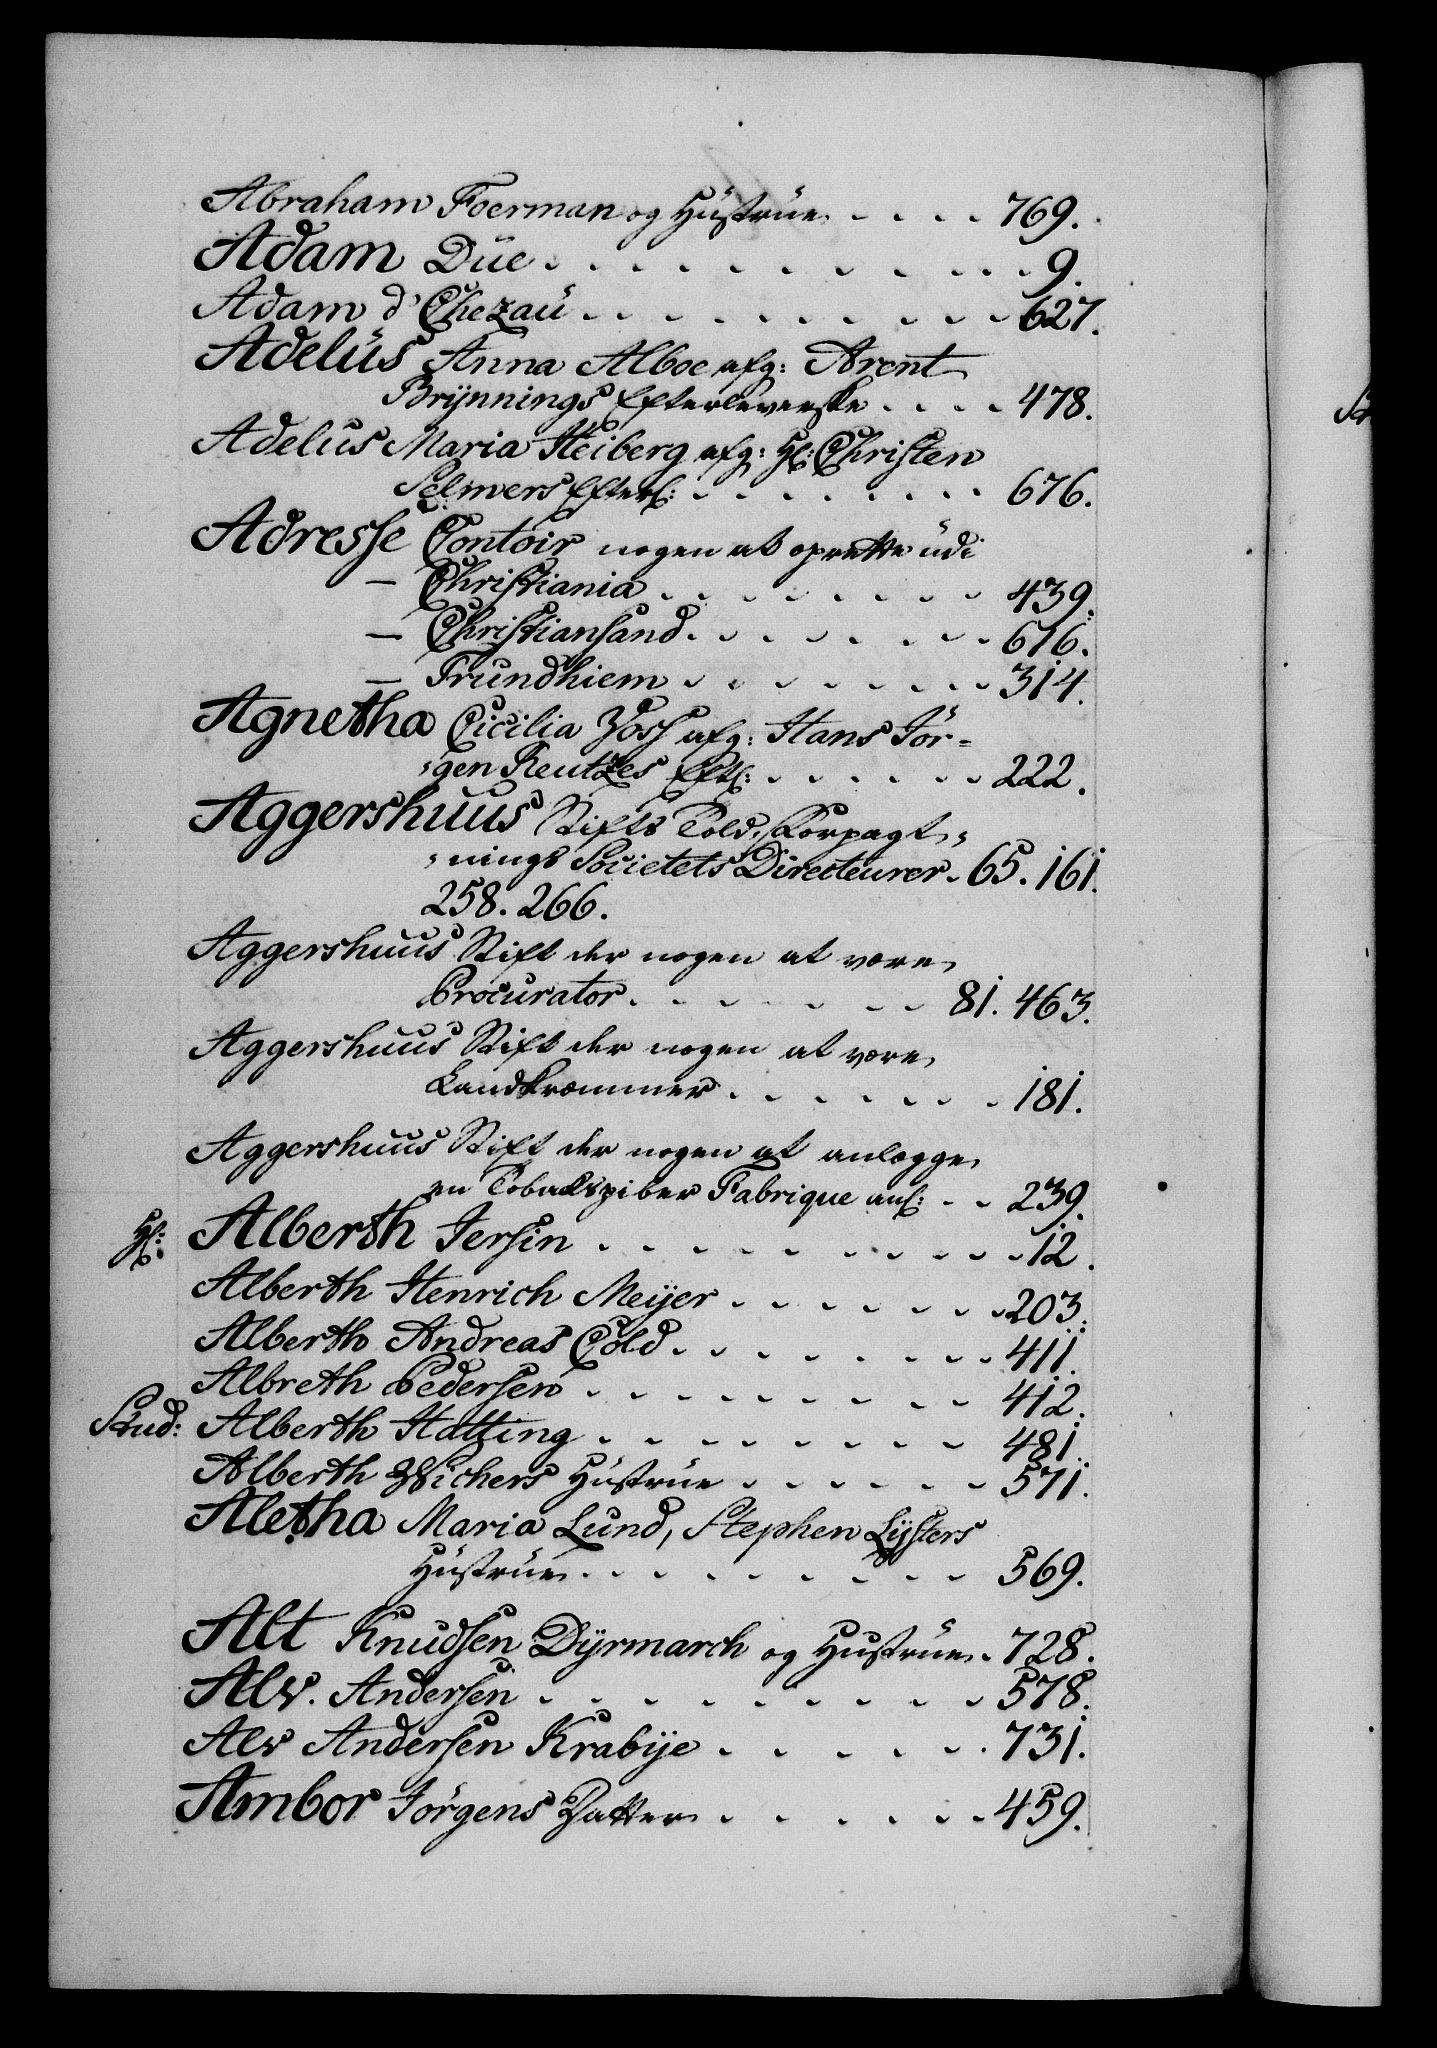 Abraham Foerman og Hüstrüe . . . . 769.
Adam Düe . . . . . . . . . . . 9.
Adam d'Chezaü . . . . . . . . . . 627.
Adelüs Anna Alboe afg: Arent
Brÿnnings Efterleverske . . . . 478.
Adelus Maria Heiberg afg: Hr: Christen
Selmers Efterl: . . . . . . . . 676.
Adresse Contoir nogen at oprette üdi
— Christiania . . . . . . . . 439.
— Christiansand . . . . . . . 616.
— Trundhiem . . . . . . . . 314.
Agnetha Cicilia Voss afg: Hans Jör=
=gen Reutzes Eftl: . . . . . . 222.
Aggershuus Stifts Told-Forpagt=
=nings Societets Directeurer . 65. 161.
258. 266.
Aggershuus Stift der nogen at være
Procurator . . . . . . . 81. 463.
Aggershuus Stift der nogen at være
Landkræmmer . . . . . . . 181.
Aggershuus Stift der nogen at anlægge
en Tobakspiber Fabrique anl: . . 239.
Hr: Alberth Jersin . . . . . . . . . . 12.
Alberth Henrich Meÿer . . . . . . . 203.
Alberth Andreas Cold . . . . . . . . 411.
Albreth Pedersen . . . . . . . . . 412.
Stud: Alberth Hatting . . . . . . . . 481.
Alberth Wichers Hüstrüe . . . . . . 571.
Aletha Maria Lund, Stephen Lÿsters
Hüstrüe . . . . . . . . . 569.
Alt Knudsen Dÿrmarch og Hustrüe . 728.
Alv. Andersen . . . . . . . . . 578.
Alv Andersen Krabÿe . . . . . . 731.
Ambor Jörgens Datter . . . . . . 459.